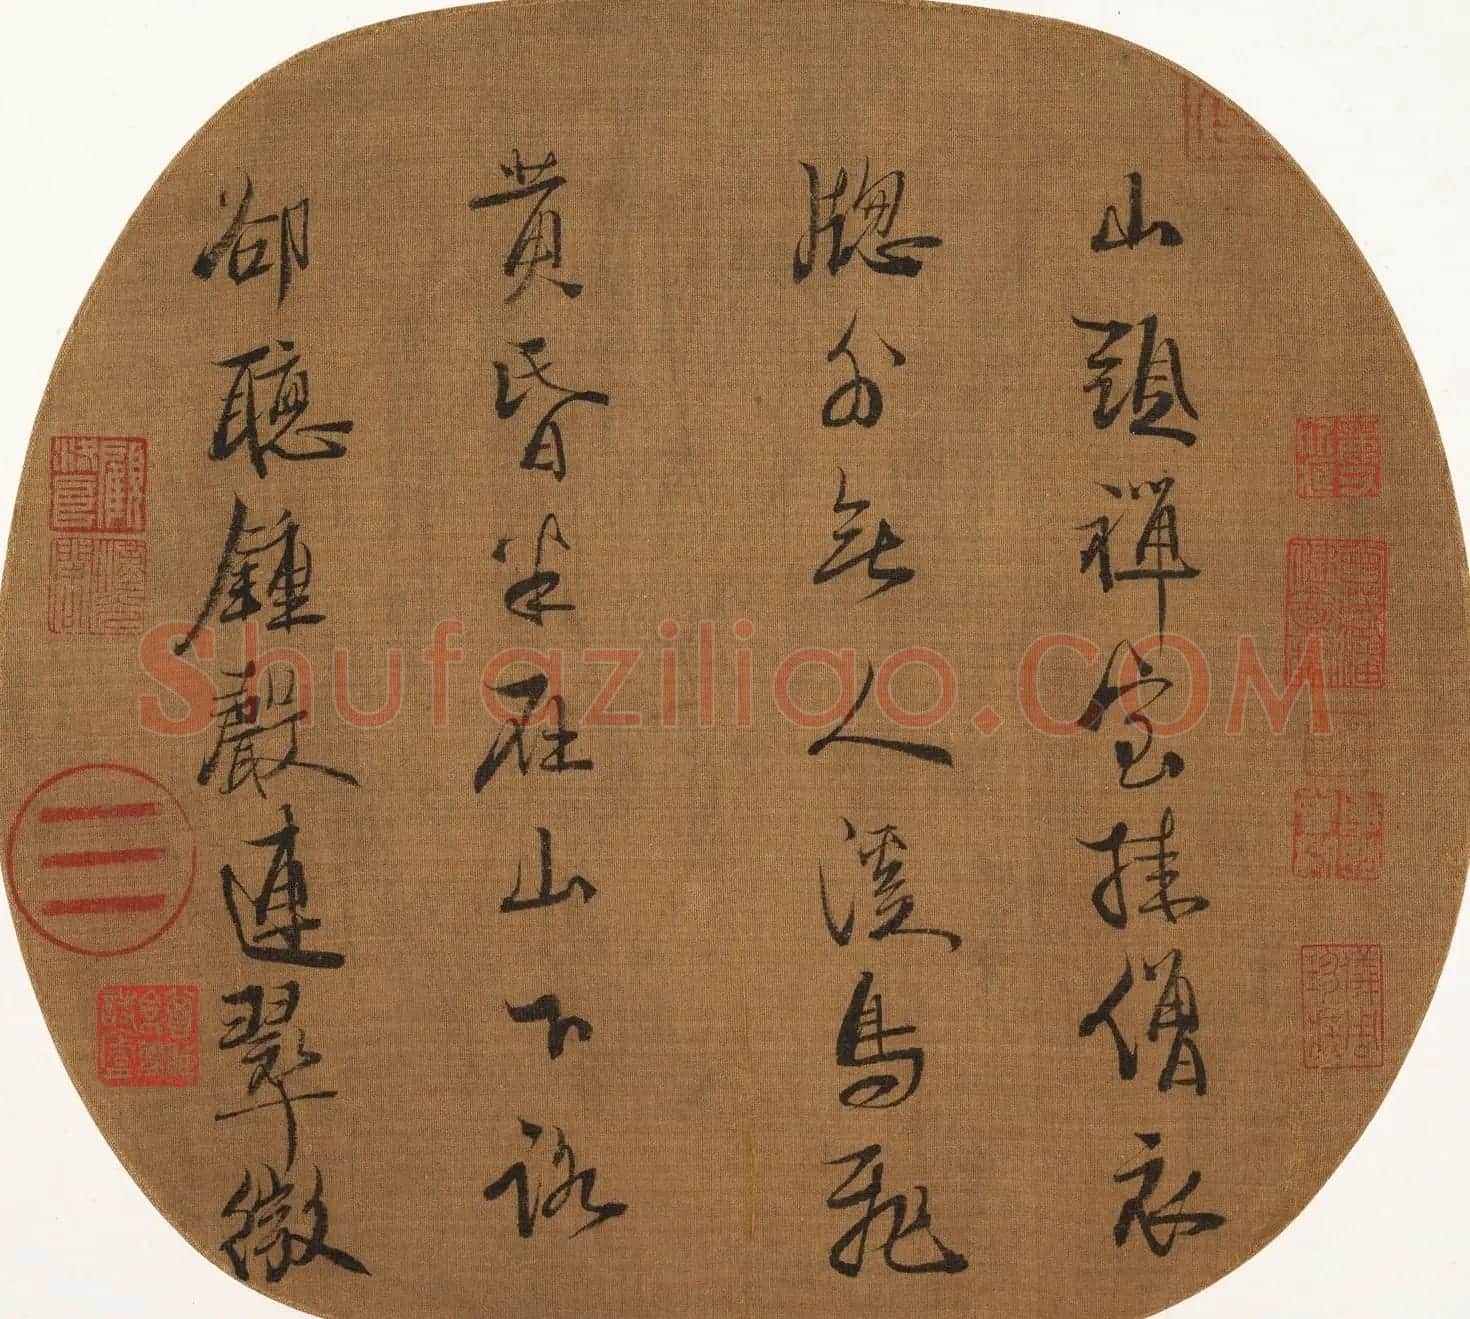 山頭禪室挂僧衣
牕外無人溪鳥飛
黃昏半在山下路
卻聽鍾聲連翠微
Shufaziliao.COM